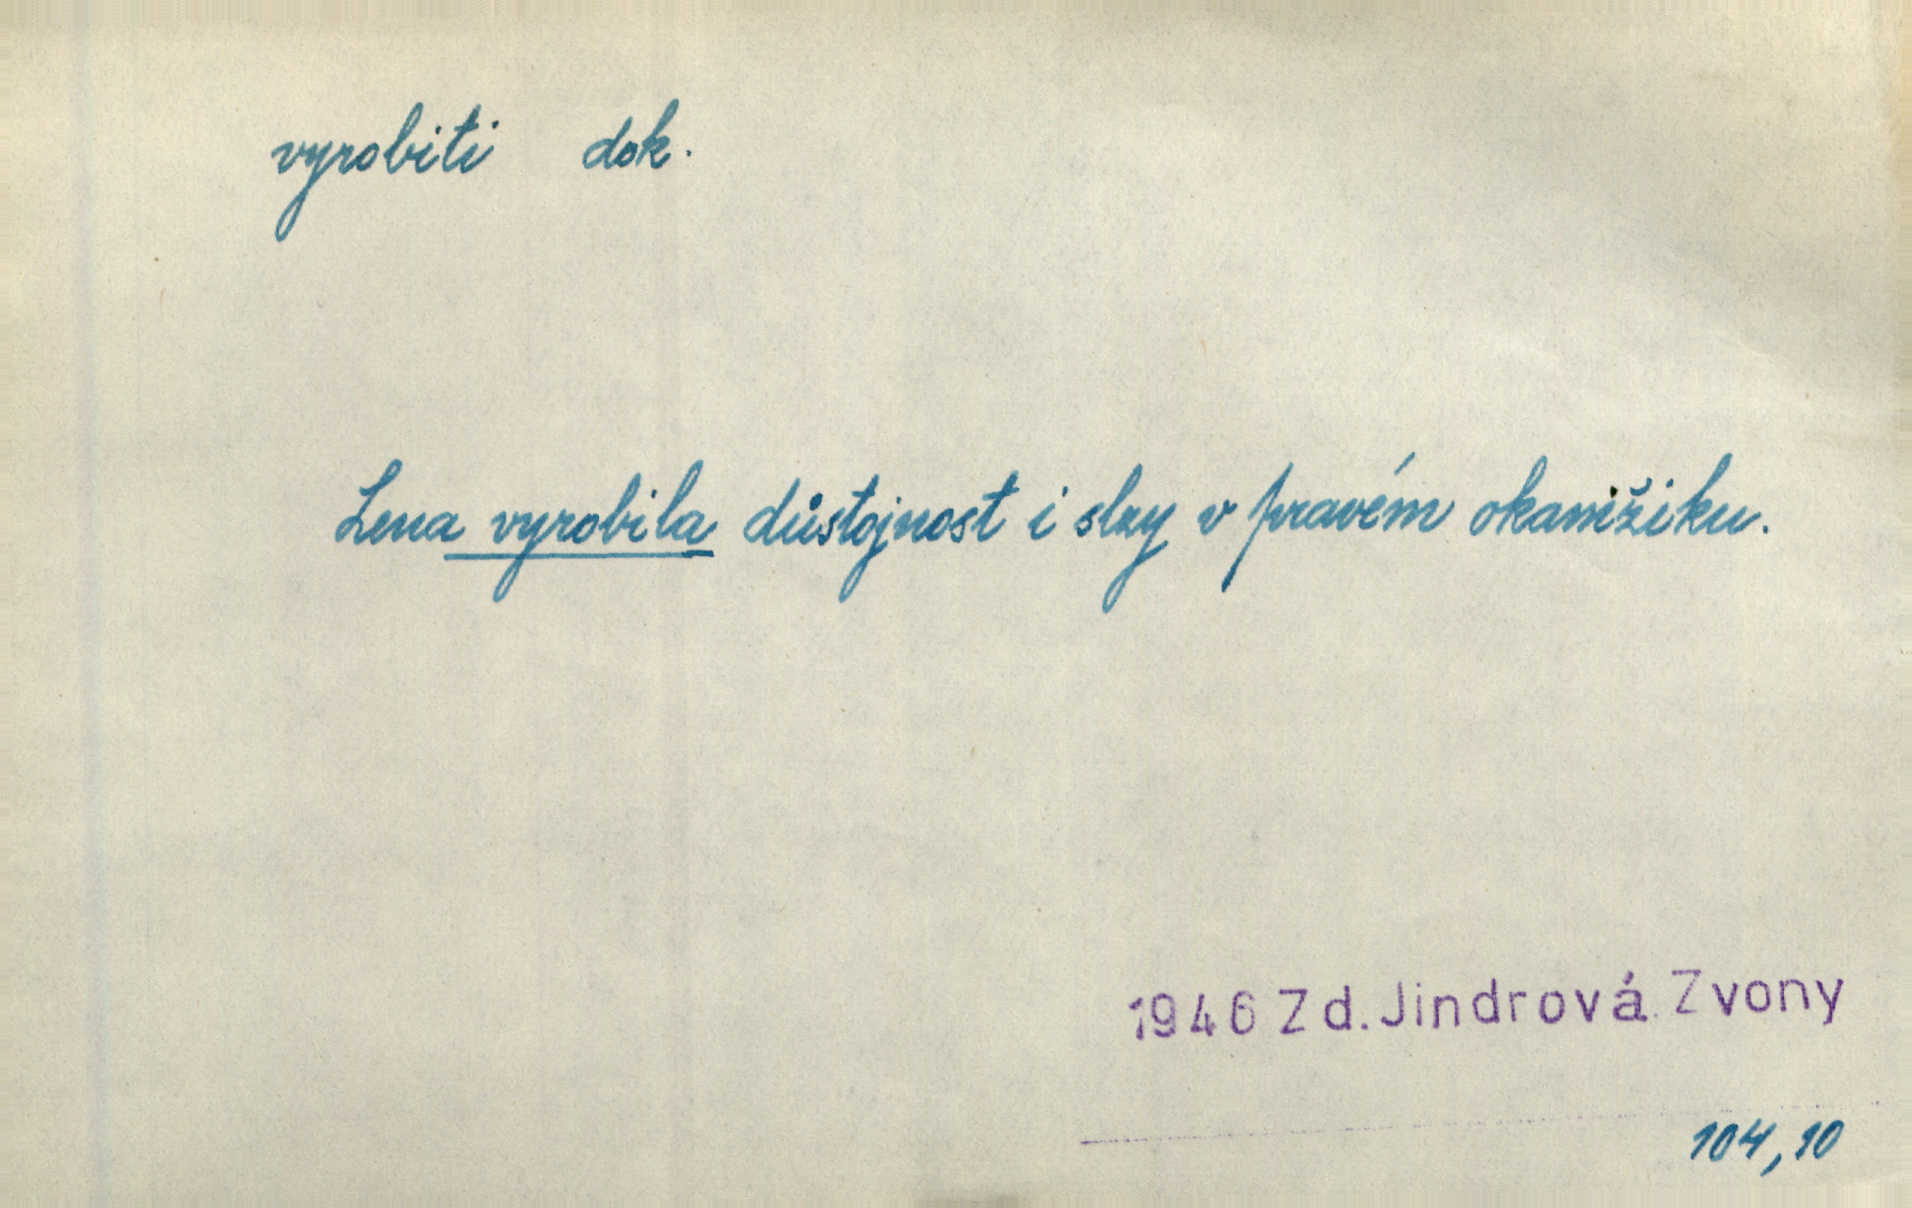 vyrobiti dok.
Lena vyrobila důstojnost i slzy v pravém okamžiku.
1946 Zd. Jindrová Zvony
104,10